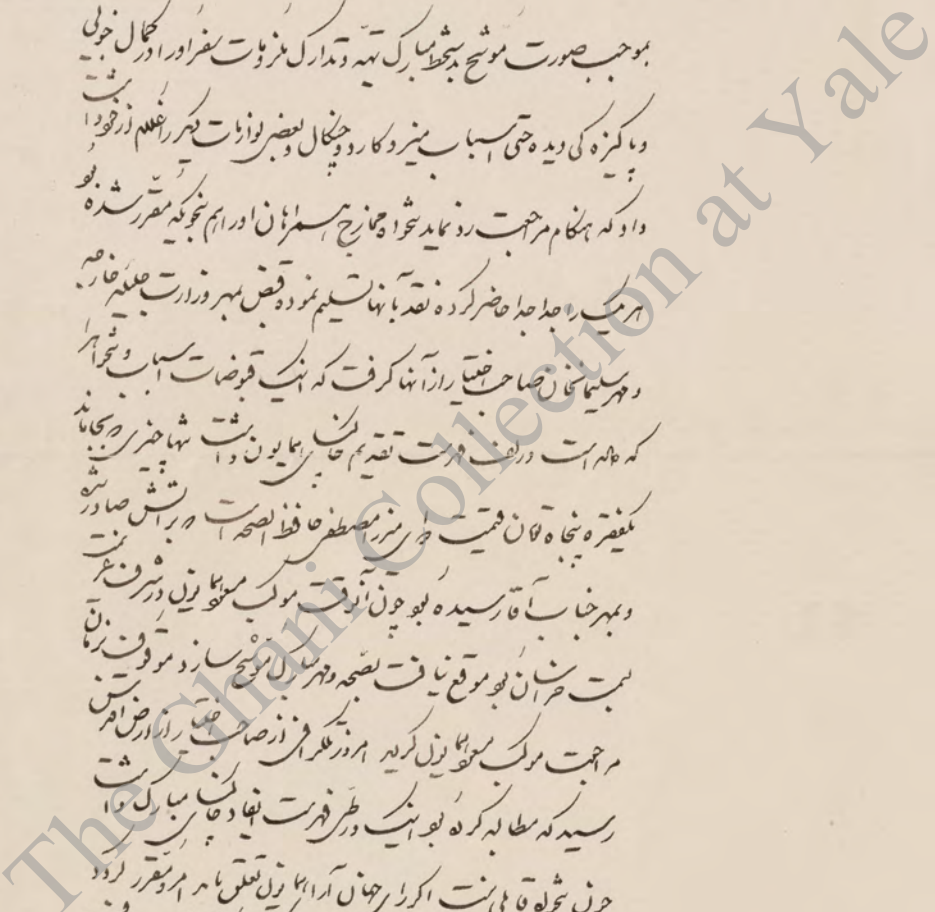 بموجب صورت موشح بدستخط مبارک تهیه و تدارک ملزومات سفر او را در کمال خوبی
و پاکیزه کی دیده حتی اسباب میز و کارد و چنکال و بعضی لوازمات دیکر را
داد که هنکام مراجعت رد نماید تنخواه مخارج همراهان او را هم بنحویکه مقرر شده بود
هر یک را جدا جدا حاضر کرده نقد بآنها تسلیم نموده قبض بمهر وزارت جلیله خارجه
و مهر سلیمانخان صاحب اختیار از آنها کرفت که اینک قبوضات اسباب و تنخواه را
که داده است در لف فهرست تقدیم خاکپای همایون داشت تنها چیزی که بجا ماند
یکفقره پنجاه تومان قیمت میرزا مصطفی حافظ الصحه است که براتش صادر شده
و بمهر جناب آقا رسیده بود چون آنوقت موکب همایون در شرف عزیمت
بسمت خراسان بود موقع نیافت بصحه و مهر مبارک موشح سازد موقوف بزمان
مراجعت موکب همایون کردید امروز تلکرافی از صاحب اختیار از ارض اقدس
رسید که مطالبه کرده بود اینک در طی فهرست انفاد خاکپای مبارک داشت
چون تنخواه قابلی نیست اکر رای جهان آرای همایون تعلق یابد امر و مقرر کردد
The Ghani Collection at Yale